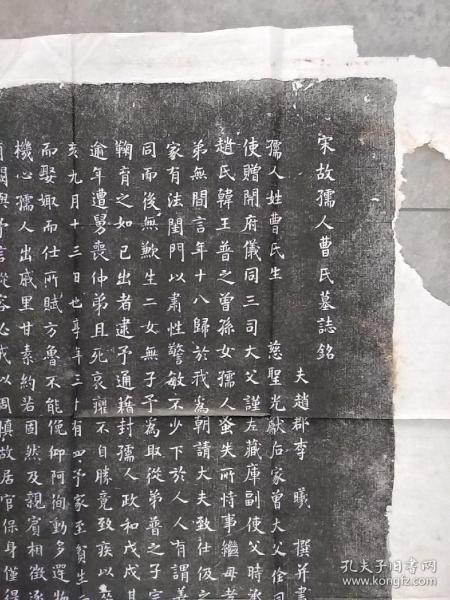 宋故孺人曹氏墓誌銘
夫趙郡李　曦　撰并書
孺人姓曹氏生　慈聖光獻后家曾大父佺同
使贈開府儀同三司大父謹左藏庫副使父時
趙氏韓王普之曾孫女孺人蚤失所恃事繼母孝
弟無間言年十八歸於我爲朝請大夫致仕伋之
家有法閨門以肅性警敏不少下於人人有謂
同而後無歉生二女無子予爲取從弟普之子
鞠育之如已出者逮予通藉封孺人政和戊戌
逾年遭舅喪仲弟且死哀癯不自勝竟致疾以
亥九月十三日也享年三十有四予家至貧生
而娶娵而仕所賦方魯不能俛仰阿徇動多迕
機心孺人出戚里甘素約若固然及親賓相
以周慎故居官保身僅得
孔夫子旧书网